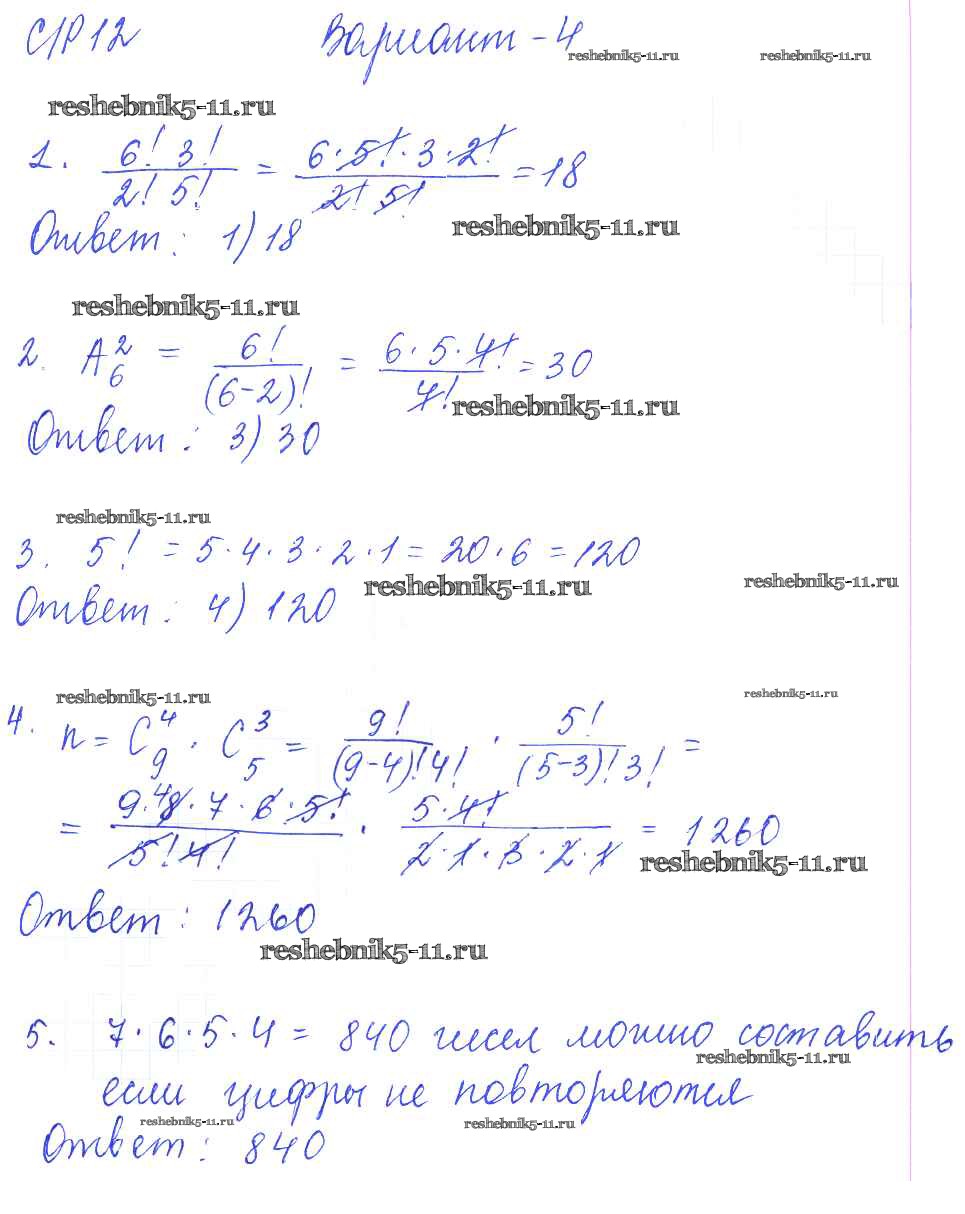 С/Р 12 Вариант - 4
reshebnik5-11.ru reshebnik5-11.ru
reshebnik5-11.ru
1. 6! 3! / 2! 5! = 6·5!·3·2! / 2! 5! = 18
Ответ: 1) 18
reshebnik5-11.ru
reshebnik5-11.ru
2. A₆² = 6! / (6-2)! = 6·5·4! / 4! = 30
reshebnik5-11.ru
Ответ: 3) 30
reshebnik5-11.ru
3. 5! = 5·4·3·2·1 = 20·6 = 120
reshebnik5-11.ru reshebnik5-11.ru
Ответ: 4) 120
reshebnik5-11.ru reshebnik5-11.ru
4. n = C₉⁴ · C₅³ = 9! / (9-4)! 4! · 5! / (5-3)! 3! =
= 9·⁴8·7·6·5! / 5! 4! · 5·4! / 2·1·3·2·1 = 1260
reshebnik5-11.ru
Ответ: 1260
reshebnik5-11.ru
5. 7·6·5·4 = 840 чисел можно составить
reshebnik5-11.ru
если цифры не повторяются
reshebnik5-11.ru reshebnik5-11.ru
Ответ: 840